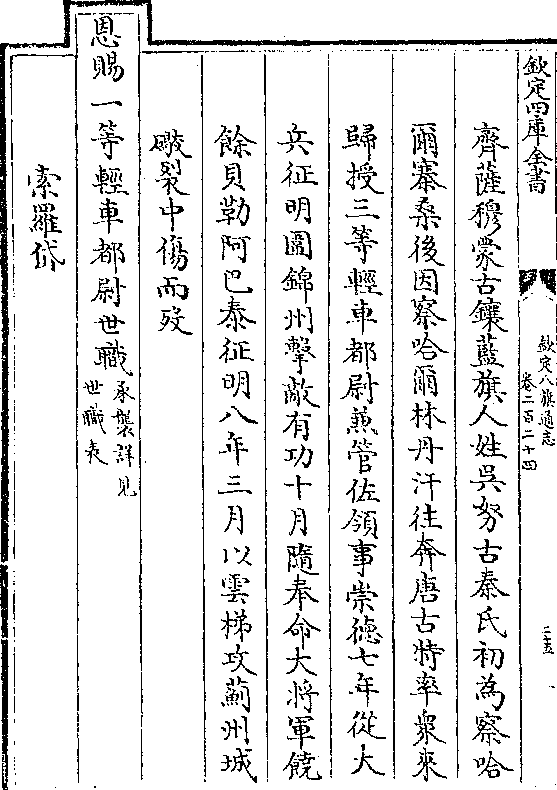 欽定四庫全書
欽定八旗通志
卷二百二十四
三五
齊薩穆蒙古鑲藍旗人姓吳努古泰氏初為察哈
爾寨桑後因察哈爾林丹汗往奔唐古特率衆來
歸授三等輕車都尉兼管佐領事崇德七年從大
兵征明圍錦州擊敵有功十月隨奉命大將軍饒
餘貝勒阿巴泰征明八年三月以雲梯攻薊州城
礮裂中傷而歿
恩賜一等輕車都尉世職承襲詳見
世職表
索羅岱